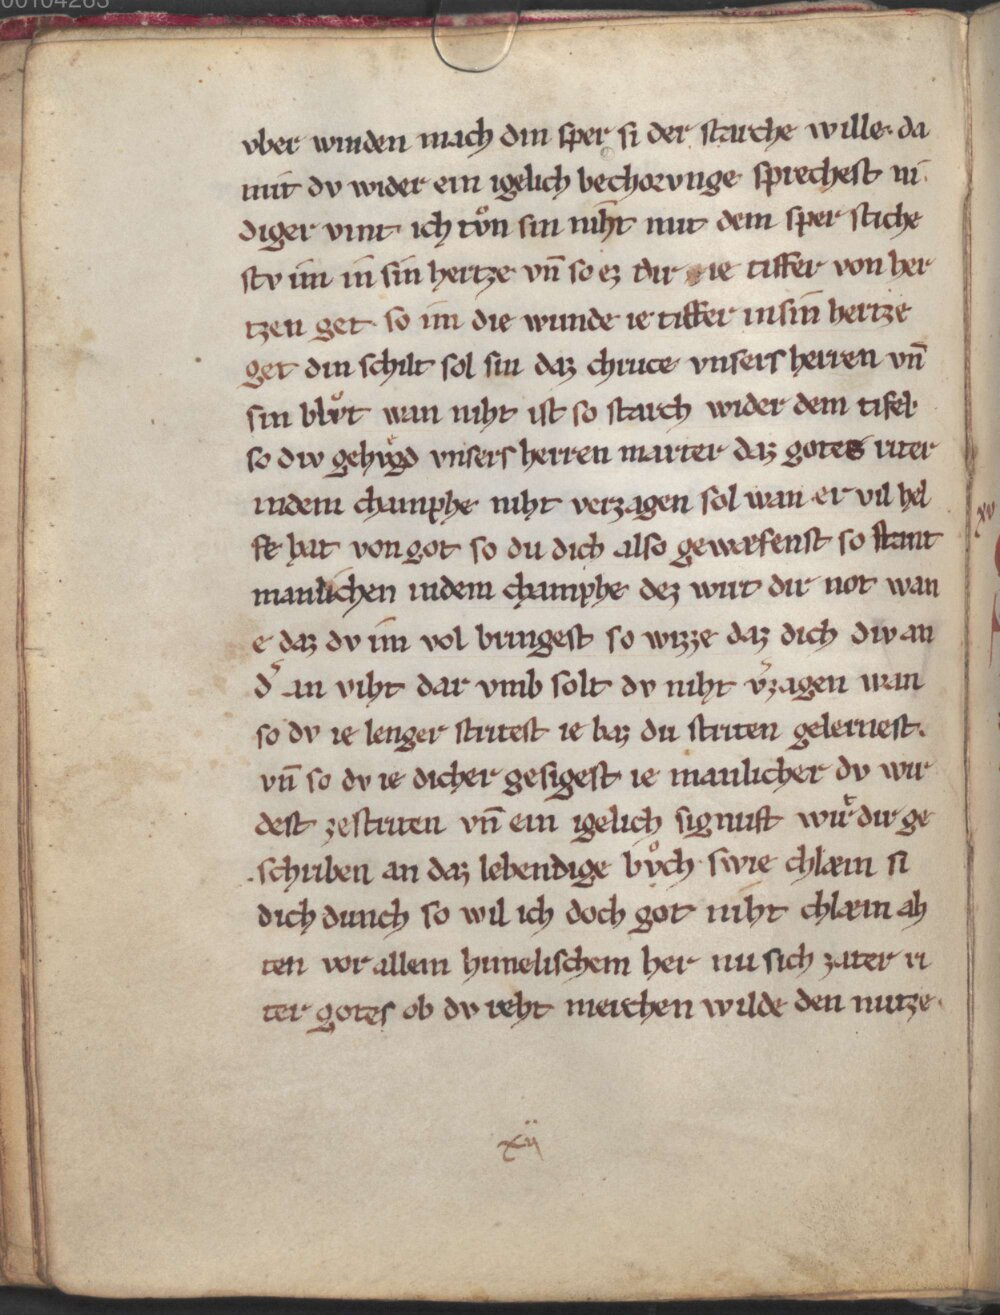 00104263
vber winden mach din sper si der starche wille· da
mit dv wider ein igelich bechorvnge sprechest ni
diger vint ich tvͦn sin niht mit dem sper stiche
stv im in sin hertze vn̄ so ez dir ie tiffer von her
tzen get· so im die wunde ie tiffer in sin hertze
get din schilt sol sin daz chruce vnsers herren vn̄
sin blvͦt wan niht ist so starch wider dem tifel
so div gehvgd vnsers herren marter daz gotes riter
in dem champhe niht verzagen sol wan er vil hel
fe hat von got so du dich also gewæfenst so stant
manlichen in dem champhe dez wirt dir not wan
e daz dv im vol bringest so wizze daz dich div an
d͛ an viht dar vmb solt dv niht v͛zagen wan
so dv ie lenger stritest ie baz du striten gelernest.
vn̄ so dv ie dicher gesigest ie manlicher dv wir
dest zestriten vn̄ ein igelich signuft wir̄ dir ge
schriben an daz lebendige bvͦch swie chlæin si
dich dunch so wil ich doch got niht chlæin ah
ten vor allem himelischem her nu sich zater ri
ter gotes ob dv reht merchen wilde den nutze·
xij
xv